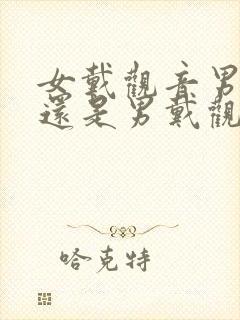 女戴觀音男
還是男戴觀
哈克特